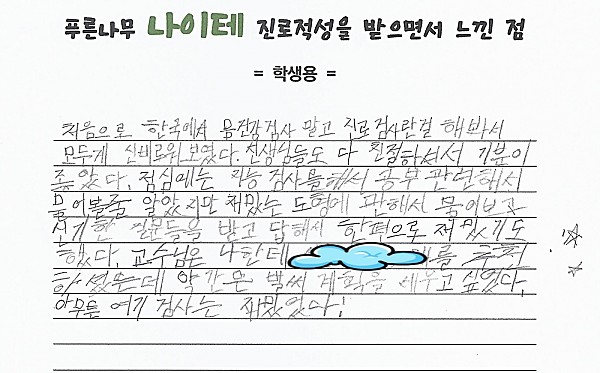 푸른나무 나이테 진로적성을 받으면서 느낀 점
= 학생용 =
처음으로 한국에서 몸건강검사 말고 진로검사란걸 해봐서
모두게 신비로워보였다. 선생님들도 다 친절하셔서 기분이
좋았다. 점심에는 지능 검사를해서 공부 관련해서
물어볼줄 알았지만 재밌는 도형에 관해서 물어보고
신기한 질문들을 받고 답해서 한편으로 재밌기도
했다. 교수님은 나한테 를 추천
하셨는데 약간은 벌써 계획을 세우고 싶었다.
아무튼 여기 검사는 재밌었다!